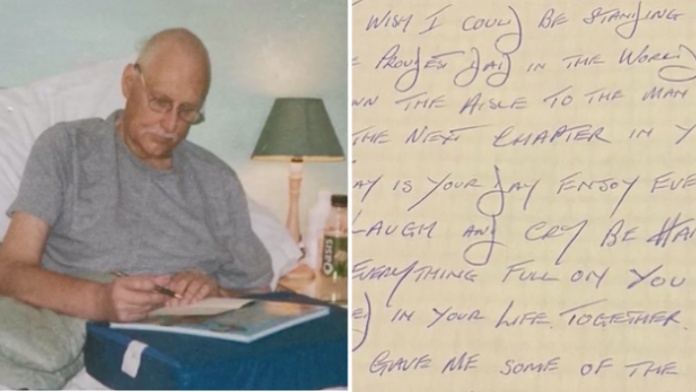 Oasis
WISH I COULD BE STANDING
PROUDEST DAY IN THE WORLD
WN THE AISLE TO THE MAN
THE NEXT CHAPTER IN Y
AY IS YOUR DAY ENJOY EVE
LAUGH AND CRY BE HA
EVERYTHING FULL ON YOU
IN YOUR LIFE TOGETHER.
GAVE ME SOME OF THE